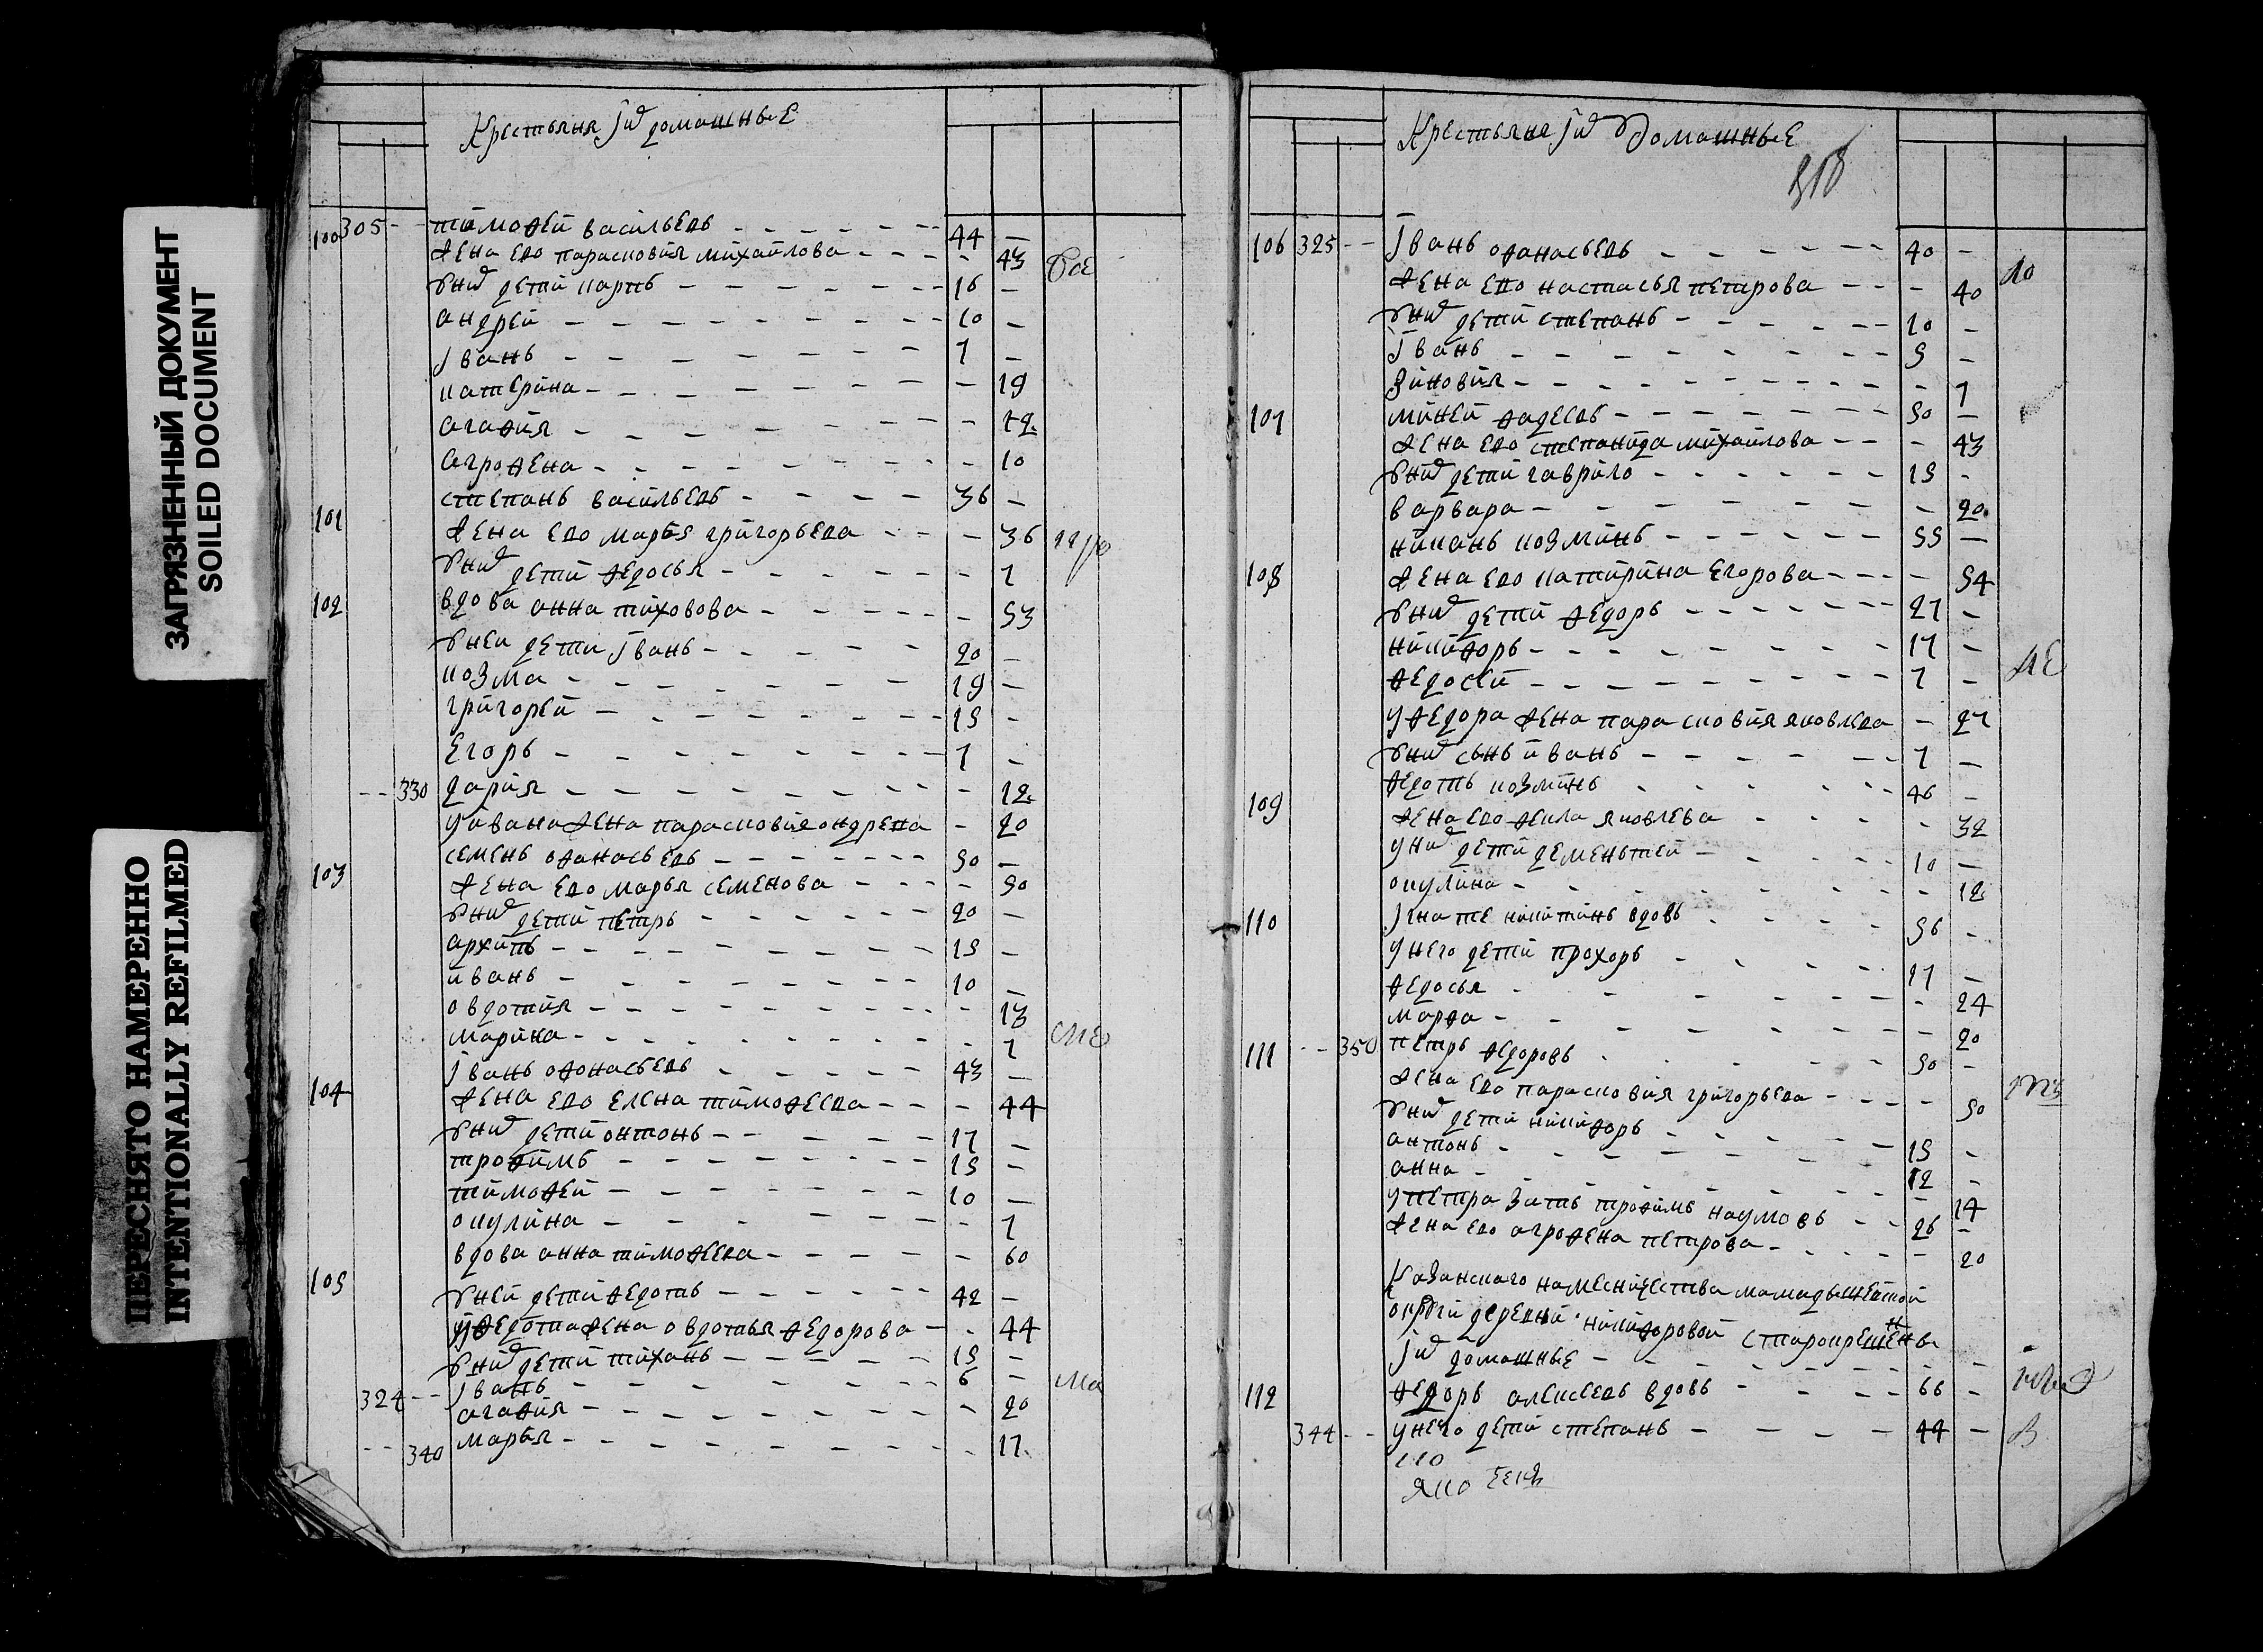 ЗАГРЯЗНЕННЫЙ ДОКУМЕНТ
SOILED DOCUMENT
ПЕРЕСНЯТО НАМЕРЕННО
INTENTIONALLY REFILMED
Крестьяня јих домашнье
100 305 -- тимофей васильевъ 44 —
жена ево парасковия михайлова — 43
уних дети карпъ 16 —
андрей 10 —
јванъ 7 —
катерина — 19
агафия — 12
агрофена — 10
101 степанъ васильевъ 36 —
жена ево марья григорьева — 36
уних дети федосья — 7
102 вдова анна тихонова — 53
уней дети јванъ 20 —
козма 19 —
григорей 15 —
егоръ 7 —
-- 330 дария — 12
уивана жена парасковия ондрена — 20
103 семенъ офанасьевъ 50 —
жена ево марья семенова — 50
уних дети петръ 20 —
архипъ 15 —
иванъ 10 —
овдотия — 13
марина — 7
104 јванъ офонасьевъ 43 —
жена ево елена тимофеева — 44
уних дети онтонъ 17 —
трофимъ 15 —
тимофей 10 —
окулина — 7
105 вдова анна тимофеева — 60
уней дети федотъ 42 —
уфедота жена овдотья федорова — 44
уних дети тиханъ 15 —
324 -- јванъ 6 —
агафия — 20
-- 340 марья — 17
Крестьяня јих домашнье
318
106 325 -- јванъ офанасьевъ 40 —
жена ево настасья петрова — 40
уних дети степанъ 10 —
јванъ 5 —
зиновия — 7
107 миней фадеевъ 50 —
жена ево степанида михайлова — 43
уних дети гаврило 15 —
варвара — 20
108 никанъ козминъ 55 —
жена ево катирина егорова — 54
уних дети федоръ 27 —
никифоръ 17 —
федосей 7 —
уфедора жена парасковия яковлева — 27
уних сынъ иванъ 7 —
109 федотъ козминъ 46 —
жена ево фекла яковлева — 32
уних дети деменьтей 10 —
окулина — 12
110 јгнатей никитинъ вдовъ 56 —
унего дети прохоръ 17 —
федосья — 24
марфа — 20
111 -- 350 петръ федоровъ 50 —
жена ево парасковия григорьева — 50
уних дети никифоръ 15 —
антонъ 12 —
анна — 14
упетра зять трофимъ наумовъ 26 —
жена ево агрофена петрова — 20
Казанского намесничества мамадышевской
округи деревни никифоровой старокрещенъ
јих домашнье
112 федоръ алексеевъ вдовъ 66 —
344 -- унего дети степанъ 44 —